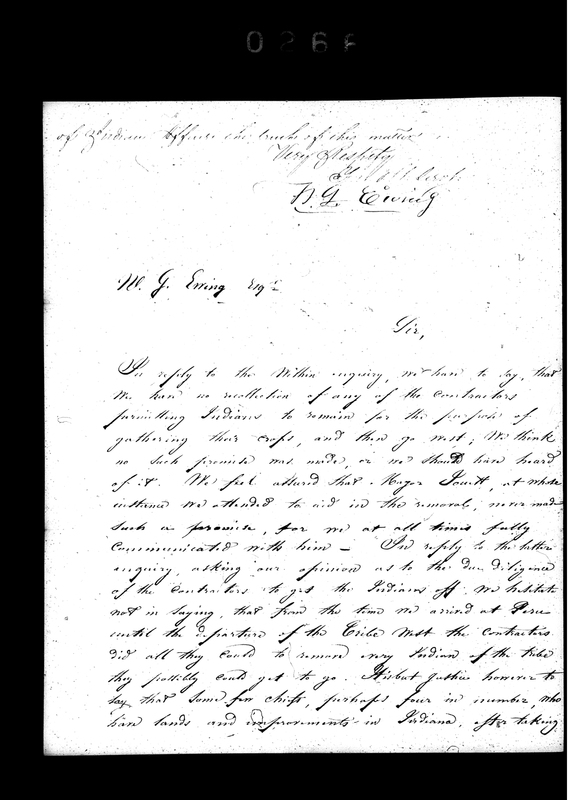 0268
of Indian Affairs the truth of this matter
Very Respcty
Yr Obt Servt
W. G. Ewing
W. G. Ewing Esqr
Sir,
In reply to the within enquiry, we have to say, that
we have no recollection of any of the contractors
permitting Indians to remain for the purpose of
gathering their crops, and then go west; We think
no such promise was made, or we should have heard
of it. We feel assured that Major Jouett, at whose
instance we attended to aid in the removal, never made
such a promise, for we at all times fully
communicated with him — In reply to the latter
enquiry, asking our opinion as to the due diligence
of the contractors to get the Indians off. We hesitate
not in saying, that from the time we arrived at Peru
until the departure of the Tribe West the contractors
did all they could to remove every Indian of the tribe
they possibly could get to go. It is but justice however to
say that some few chiefs, perhaps four in number, who
have lands and improvements in Indiana, after taking